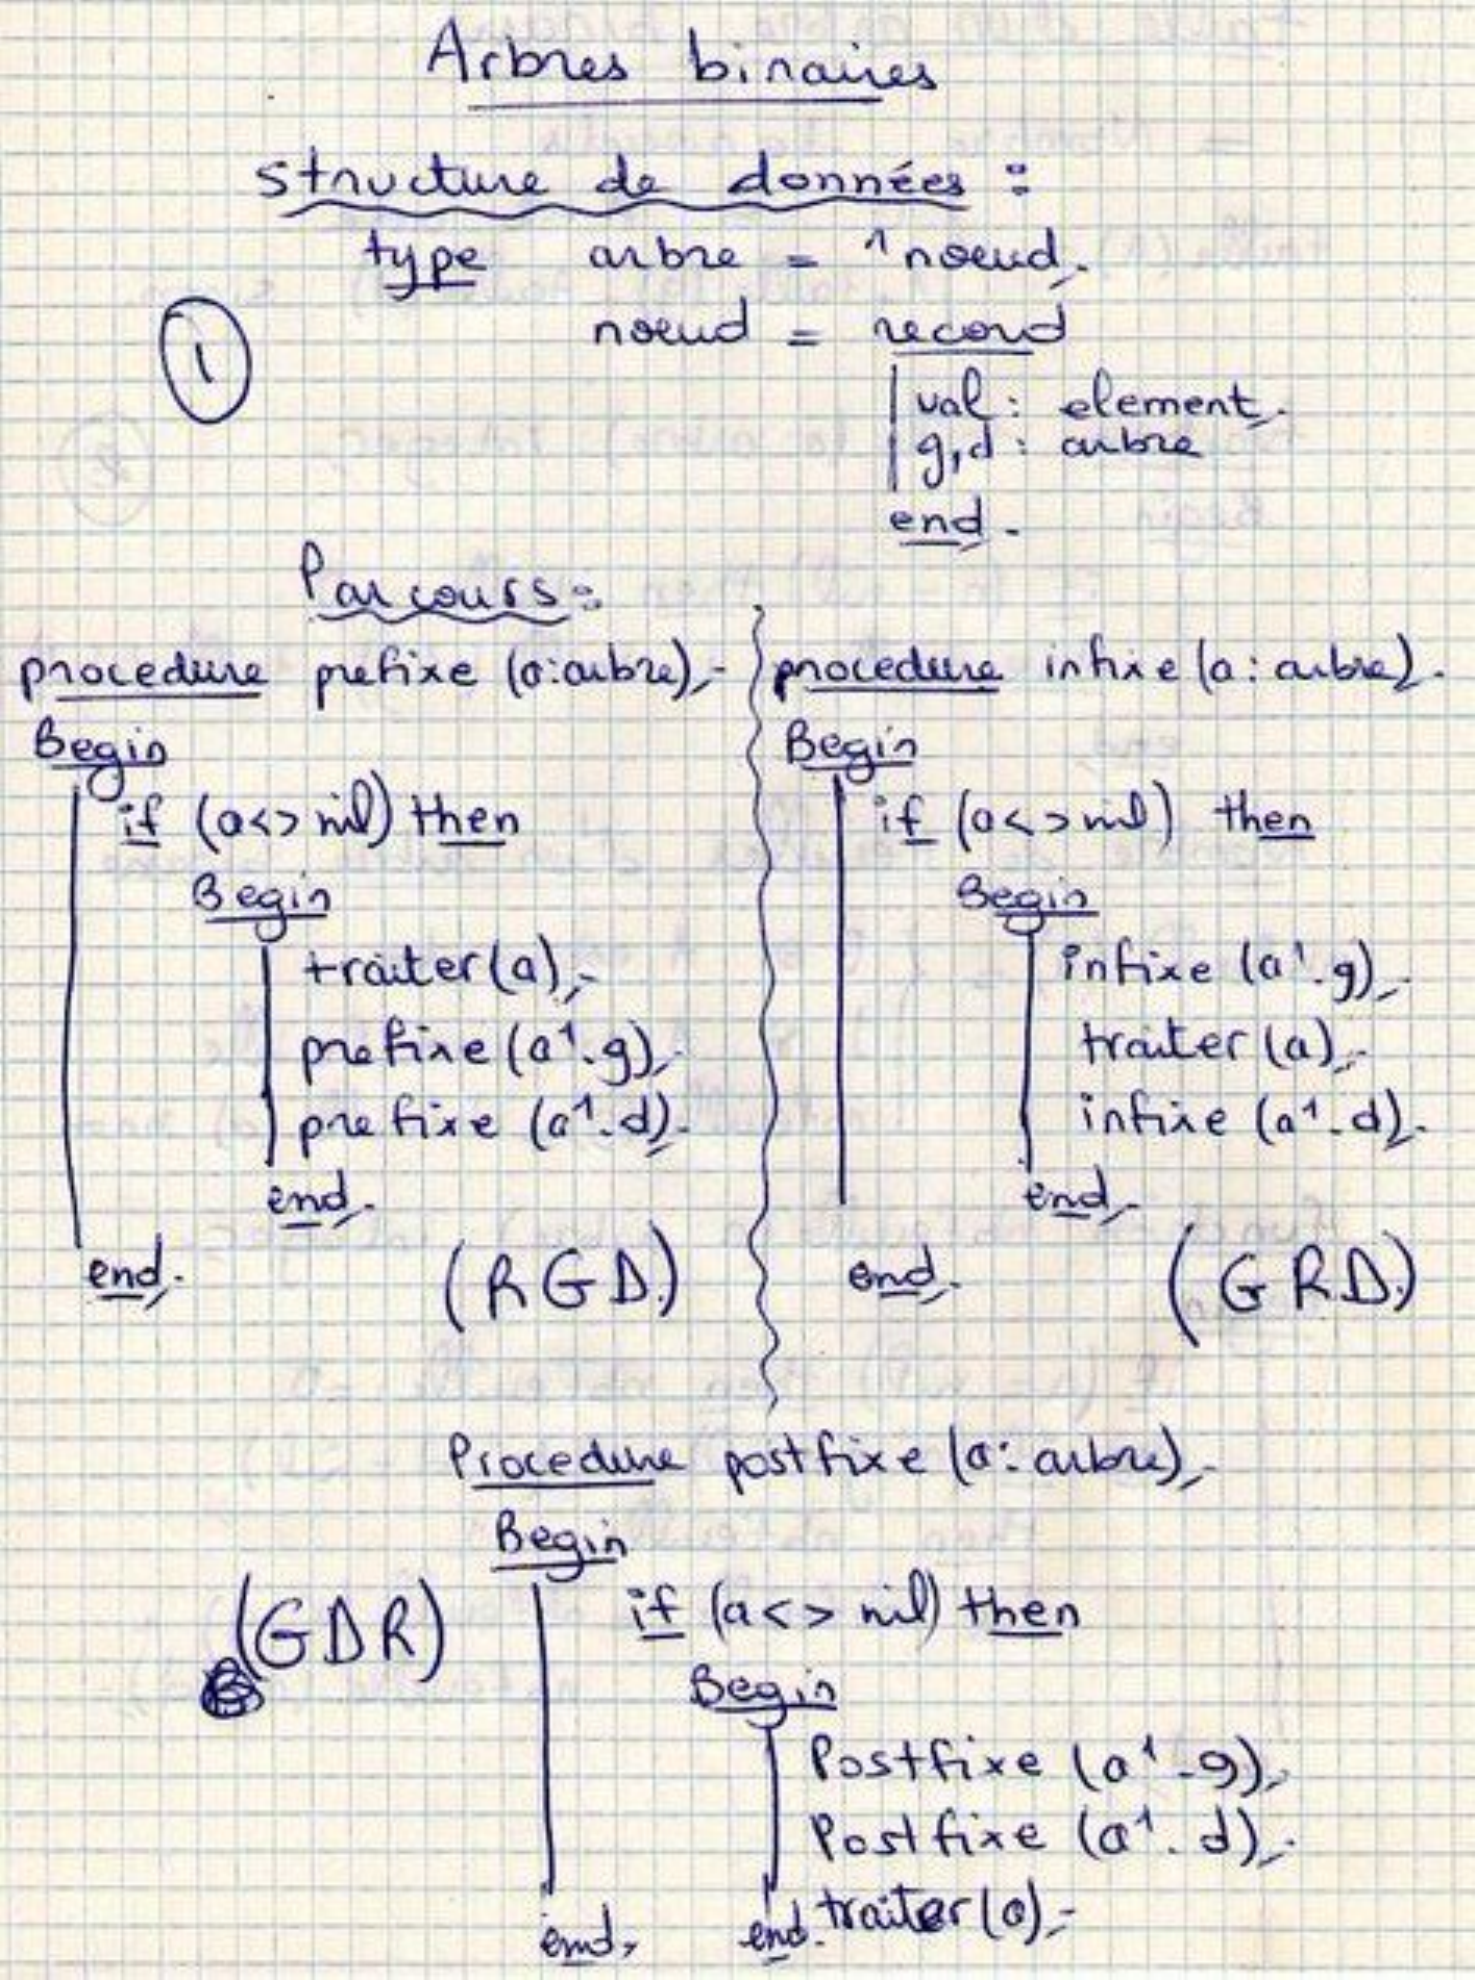 Arbres binaires
structure de données :
type arbre = ^noeud;
noeud = record
①
val : element;
g,d : arbre
end;
Parcours :
procedure prefixe (a:arbre);
Begin
if (a<>nil) then
Begin
traiter(a);
prefixe (a^.g);
prefixe (a^.d);
end;
end;
(RGD)
procedure infixe (a : arbre);
Begin
if (a<>nil) then
Begin
infixe (a^.g);
traiter (a);
infixe (a^.d);
end;
end;
(GRD)
Procedure postfixe (a : arbre);
Begin
(GDR)
if (a<> nil) then
Begin
Postfixe (a^.g);
Postfixe (a^.d);
traiter (a);
end;
end;